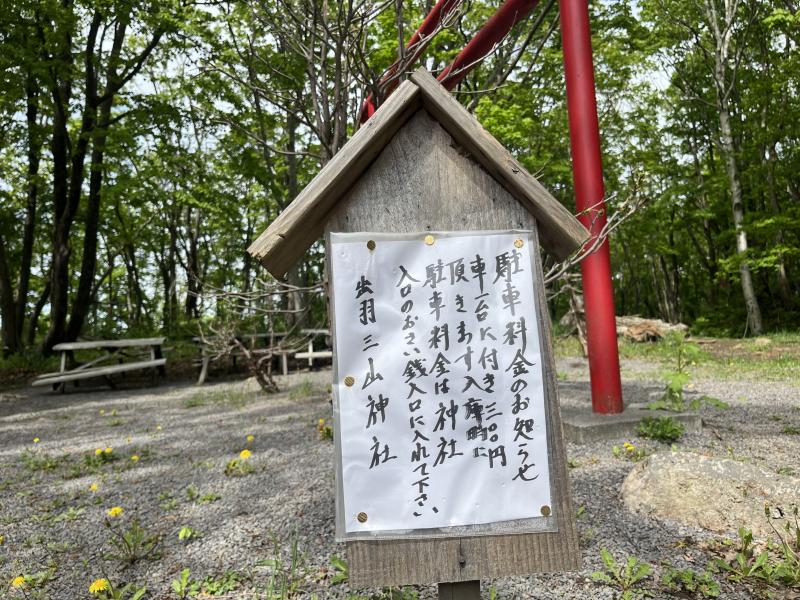 駐車料金のお知らせ
車一台に付き三〇〇円
頂きます入庫時に
駐車料金は神社
入口のおさい銭入口に入れて下さい
出羽三山神社